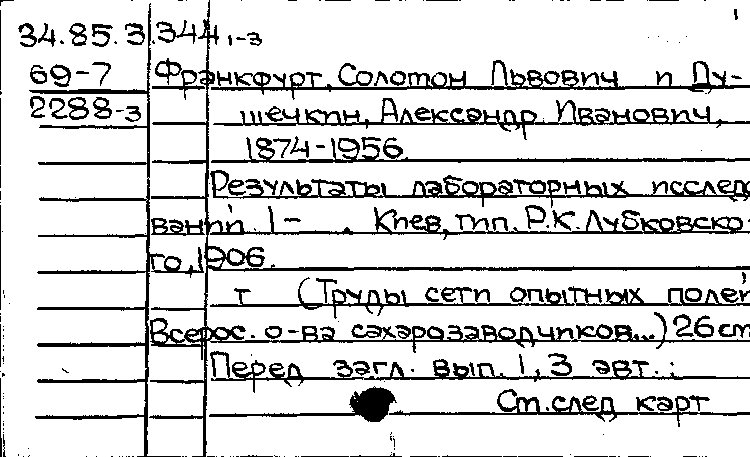 1
34.85.3.344,1-3
69-7 Франкфурт, Соломон Львович и Ду-
2288-3 шечкин, Александр Иванович,
1874-1956.
Результаты лабораторных исследо
ваний. 1- . Киев, тип. Р.К. Лубковско-
го, 1906.
т (Труды сети опытных полей
Всерос. о-ва сахарозаводчиков...) 26 cm
Перед загл. вып. 1, 3 авт.:
См.след карт